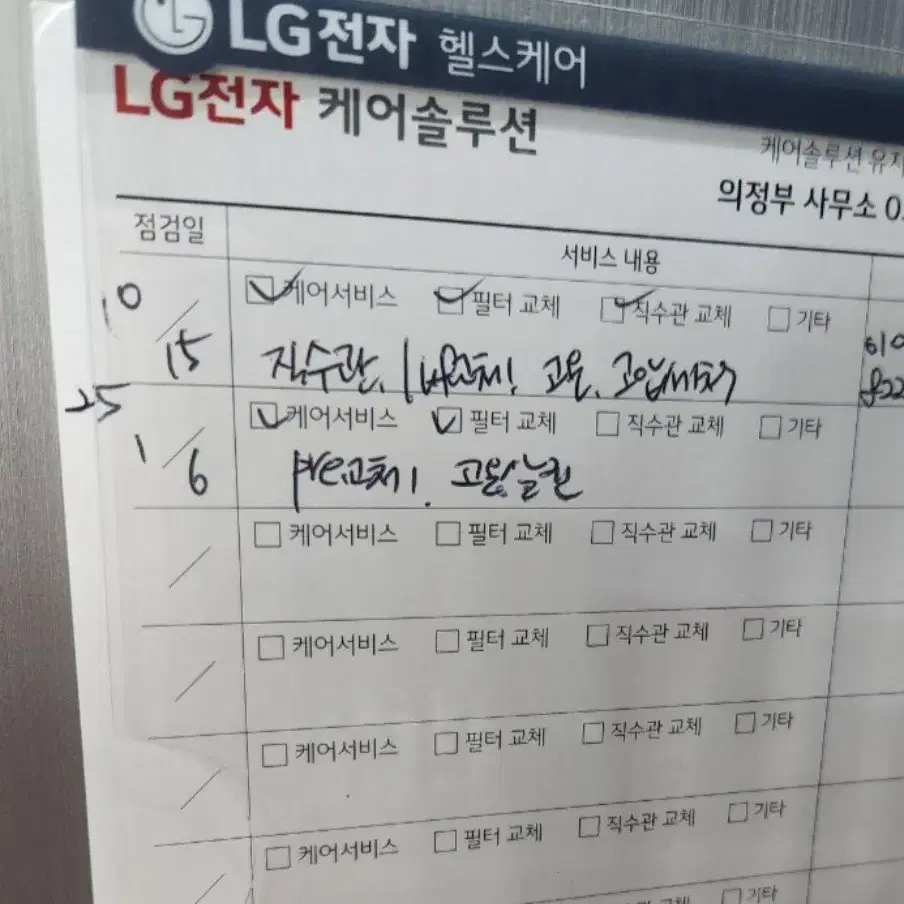 LG전자 헬스케어
LG전자 케어솔루션
케어솔루션 유지
의정부 사무소 0
점검일 서비스 내용
10/15 케어서비스 필터 교체 직수관 교체 기타
직수관, 고온, 고압세척
25
1/6 케어서비스 필터 교체 직수관 교체 기타
pre교체! 고온살균
/ 케어서비스 필터 교체 직수관 교체 기타
/ 케어서비스 필터 교체 직수관 교체 기타
/ 케어서비스 필터 교체 직수관 교체 기타
/ 케어서비스 필터 교체 직수관 교체 기타
기타